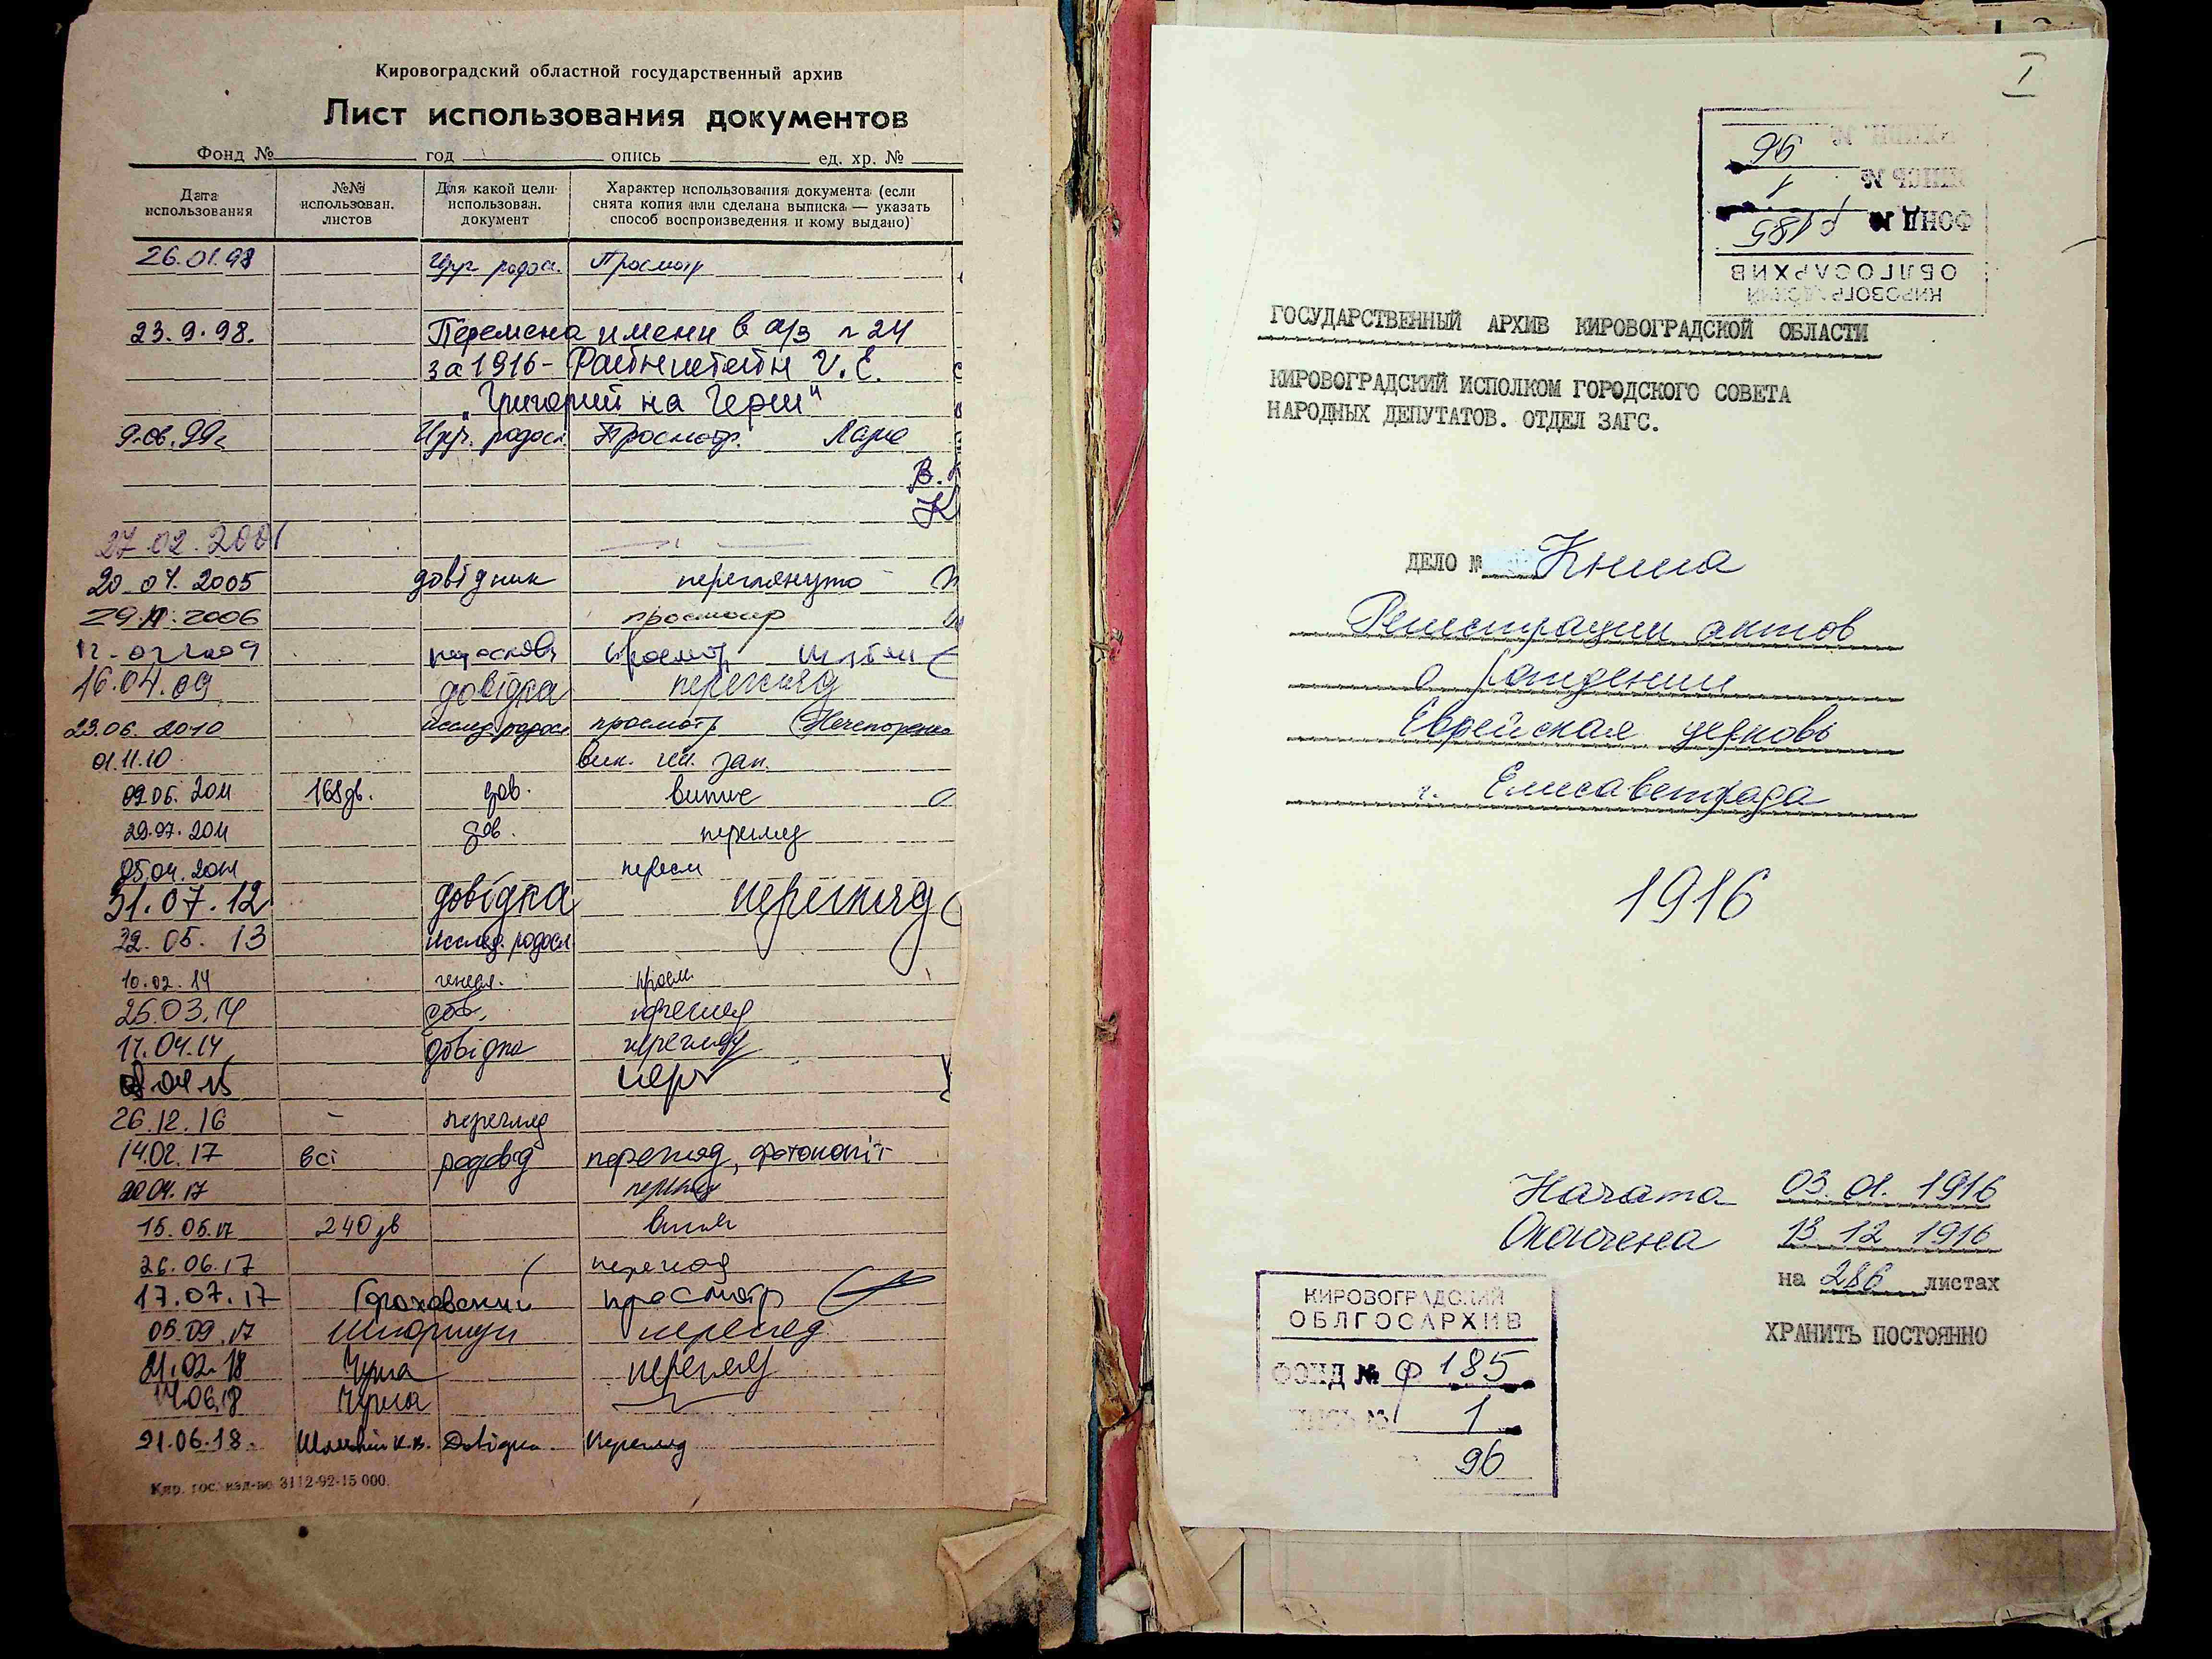 Кировоградский областной государственный архив
Лист использования документов
Фонд № год опись ед. хр. №
Дата использования
№№ использован. листов
Для какой цели использован. документ
Характер использования документа (если снята копия или сделана выписка — указать способ воспроизведения и кому выдано)
26.01.98 Просмотр
23.9.98. Перемена имени в а/з
за 1916 -
„Григорий на Герш"
9.06.99г. Просмотр.
27.02.2001
20.04.2005 довідник переглянуто
2006 просмотр
просмотр
16.04.09 довідка перегляд
23.06.2010 исслед. родосл просмотр Нечипоренко
01.11.10 вик. ген. зап.
09.06.2011 168зв. дов. витяг
29.07.2011 дов. перегляд
05.04.
31.07.12 довідка перегляд
22.05.13 исслед. родосл
10.02.14 генеал. просм.
25.03.14 перегляд
17.04.14 довідка перегляд
26.12.16 – перегляд
14.02.17 всі родовід перегляд, фотокопії
20.04.17 перегляд
15.05.17 240зв витяг
26.06.17 перегляд
17.07.17 Гороховский просмотр
05.09.17 перегляд
21.02.18 перегляд
14.06.18
21.06.18. Довідка Перегляд
Кир. гос. изд-во 3112-92-15 000.
I
КИРОВОГРАДСКИЙ
ОБЛГОСАРХИВ
ФОНД № р 185
ОПИСЬ № 1
96
ГОСУДАРСТВЕННЫЙ АРХИВ КИРОВОГРАДСКОЙ ОБЛАСТИ
КИРОВОГРАДСКИЙ ИСПОЛКОМ ГОРОДСКОГО СОВЕТА
НАРОДНЫХ ДЕПУТАТОВ. ОТДЕЛ ЗАГС.
ДЕЛО № Книга
Регистрации актов
о рождении
Еврейская церковь
г. Елисаветграда
1916
Начата 03.01.1916
Окончена 13 12 1916
на 286 листах
ХРАНИТЬ ПОСТОЯННО
КИРОВОГРАДСКИЙ
ОБЛГОСАРХИВ
ФОНД № р 185
ОПИСЬ № 1
96